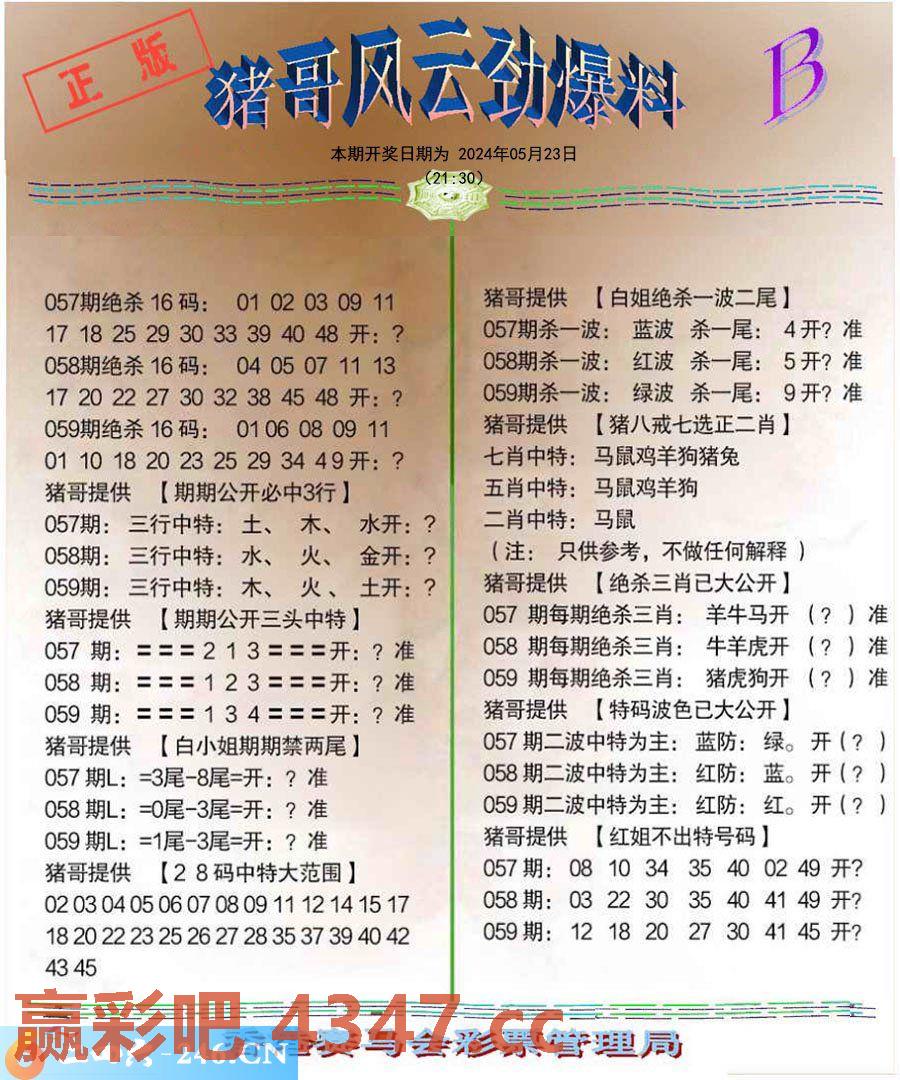 正版
猪哥风云劲爆料
B
本期开奖日期为 2024年05月23日
(21:30)
057期绝杀 16 码： 01 02 03 09 11
17 18 25 29 30 33 39 40 48 开：?
058期绝杀 16 码： 04 05 07 11 13
17 20 22 27 30 32 38 45 48 开：?
059期绝杀 16 码： 01 06 08 09 11
01 10 18 20 23 25 29 34 4 9 开：?
猪哥提供 【期期公开必中3行】
057期：三行中特：土、 木、 水开：?
058期：三行中特：水、 火、 金开：?
059期：三行中特：木、 火 、土开：?
猪哥提供 【期期公开三头中特】
057 期：＝＝＝2 1 3＝＝＝开：? 准
058 期：＝＝＝1 2 3＝＝＝开：? 准
059 期：＝＝＝1 3 4＝＝＝开：? 准
猪哥提供 【白小姐期期禁两尾】
057 期L：=3尾-8尾=开：? 准
058 期L：=0尾-3尾=开：? 准
059 期L：=1尾-3尾=开：? 准
猪哥提供 【2 8 码中特大范围】
02 03 04 05 06 07 08 09 11 12 14 15 17
18 20 22 23 25 26 27 28 35 37 39 40 42
43 45
猪哥提供 【白姐绝杀一波二尾】
057期杀一波： 蓝波 杀一尾： 4 开? 准
058期杀一波： 红波 杀一尾： 5 开? 准
059期杀一波： 绿波 杀一尾： 9 开? 准
猪哥提供 【猪八戒七选正二肖】
七肖中特： 马鼠鸡羊狗猪兔
五肖中特： 马鼠鸡羊狗
二肖中特： 马鼠
（注： 只供参考，不做任何解释 ）
猪哥提供 【绝杀三肖已大公开】
057 期每期绝杀三肖： 羊牛马开 （? ）准
058 期每期绝杀三肖： 牛羊虎开 （? ）准
059 期每期绝杀三肖： 猪虎狗开 （? ）准
猪哥提供 【特码波色已大公开】
057 期二波中特为主：蓝防：绿。 开（? ）
058 期二波中特为主：红防：蓝。 开（? ）
059 期二波中特为主：红防：红。 开（? ）
猪哥提供 【红姐不出特号码】
057 期： 08 10 34 35 40 02 49 开?
058 期： 03 22 30 35 40 41 49 开?
059 期： 12 18 20 27 30 41 45 开?
赢彩吧 4347.cc
马会彩票管理局
-246.CN